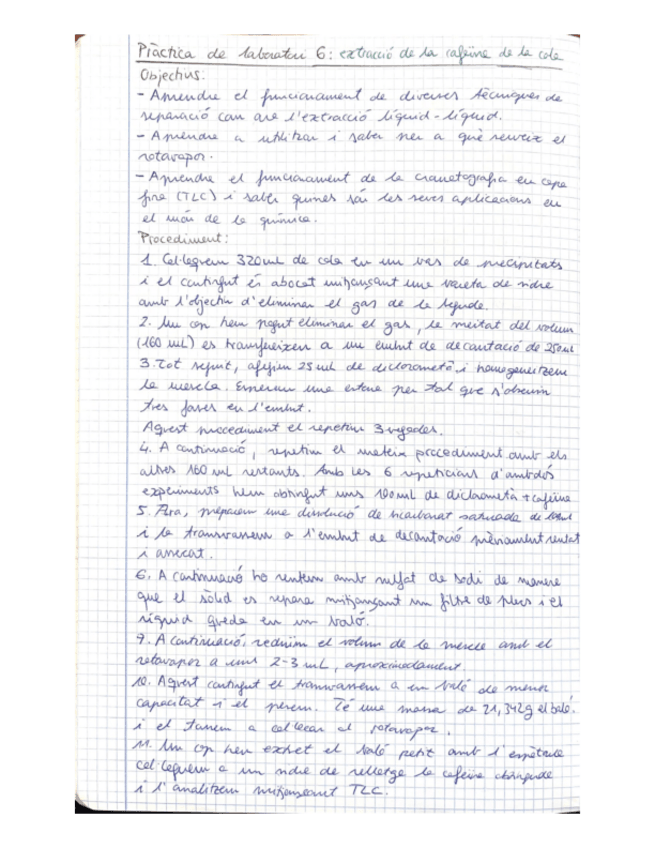 Pràctica de laboratori 6: extracció de la cafeïna de la cola
Objectius:
- Aprendre el funcionament de diverses tècniques de
separació com ara l'extracció líquid-líquid.
- Aprendre a utilitzar i saber per a què serveix el
rotavapor.
- Aprendre el funcionament de la cromatografia en capa
fina (TLC) i saber quines són les seves aplicacions en
el món de la química.
Procediment:
1. Col·loquem 320 mL de cola en un vas de precipitats
i el contingut és abocat mitjançant una vareta de vidre
amb l'objectiu d'eliminar el gas de la beguda.
2. Un cop hem pogut eliminar el gas, la meitat del volum
(160 mL) es transfereixen a un embut de decantació de 250 mL
3. Tot seguit, afegim 25 mL de diclorometà i homogeneitzem
la mescla. Esperem una estona per tal que s'observin
tres fases en l'embut.
Aquest procediment el repetim 3 vegades.
4. A continuació, repetim el mateix procediment amb els
altres 160 mL restants. Amb les 6 repeticions d'ambdós
experiments hem obtingut uns 100 mL de diclorometà + cafeïna
5. Ara, preparem una dissolució de bicarbonat saturada de
i la transvasem a l'embut de decantació prèviament rentat
i assecat.
6. A continuació ho rentem amb sulfat de sodi de manera
que el sòlid es separa mitjançant un filtre de plecs i el
líquid queda en un baló.
9. A continuació, reduïm el volum de la mescla amb el
rotavapor a uns 2-3 mL, aproximadament.
10. Aquest contingut el transvasem a un baló de menor
capacitat i el pesem. Té una massa de 21,342g el baló.
i el tornem a col·locar al rotavapor.
11. Un cop hem extret el baló petit amb l'espàtula
col·loquem a un vidre de rellotge la cafeïna obtinguda
i l'analitzem mitjançant TLC.